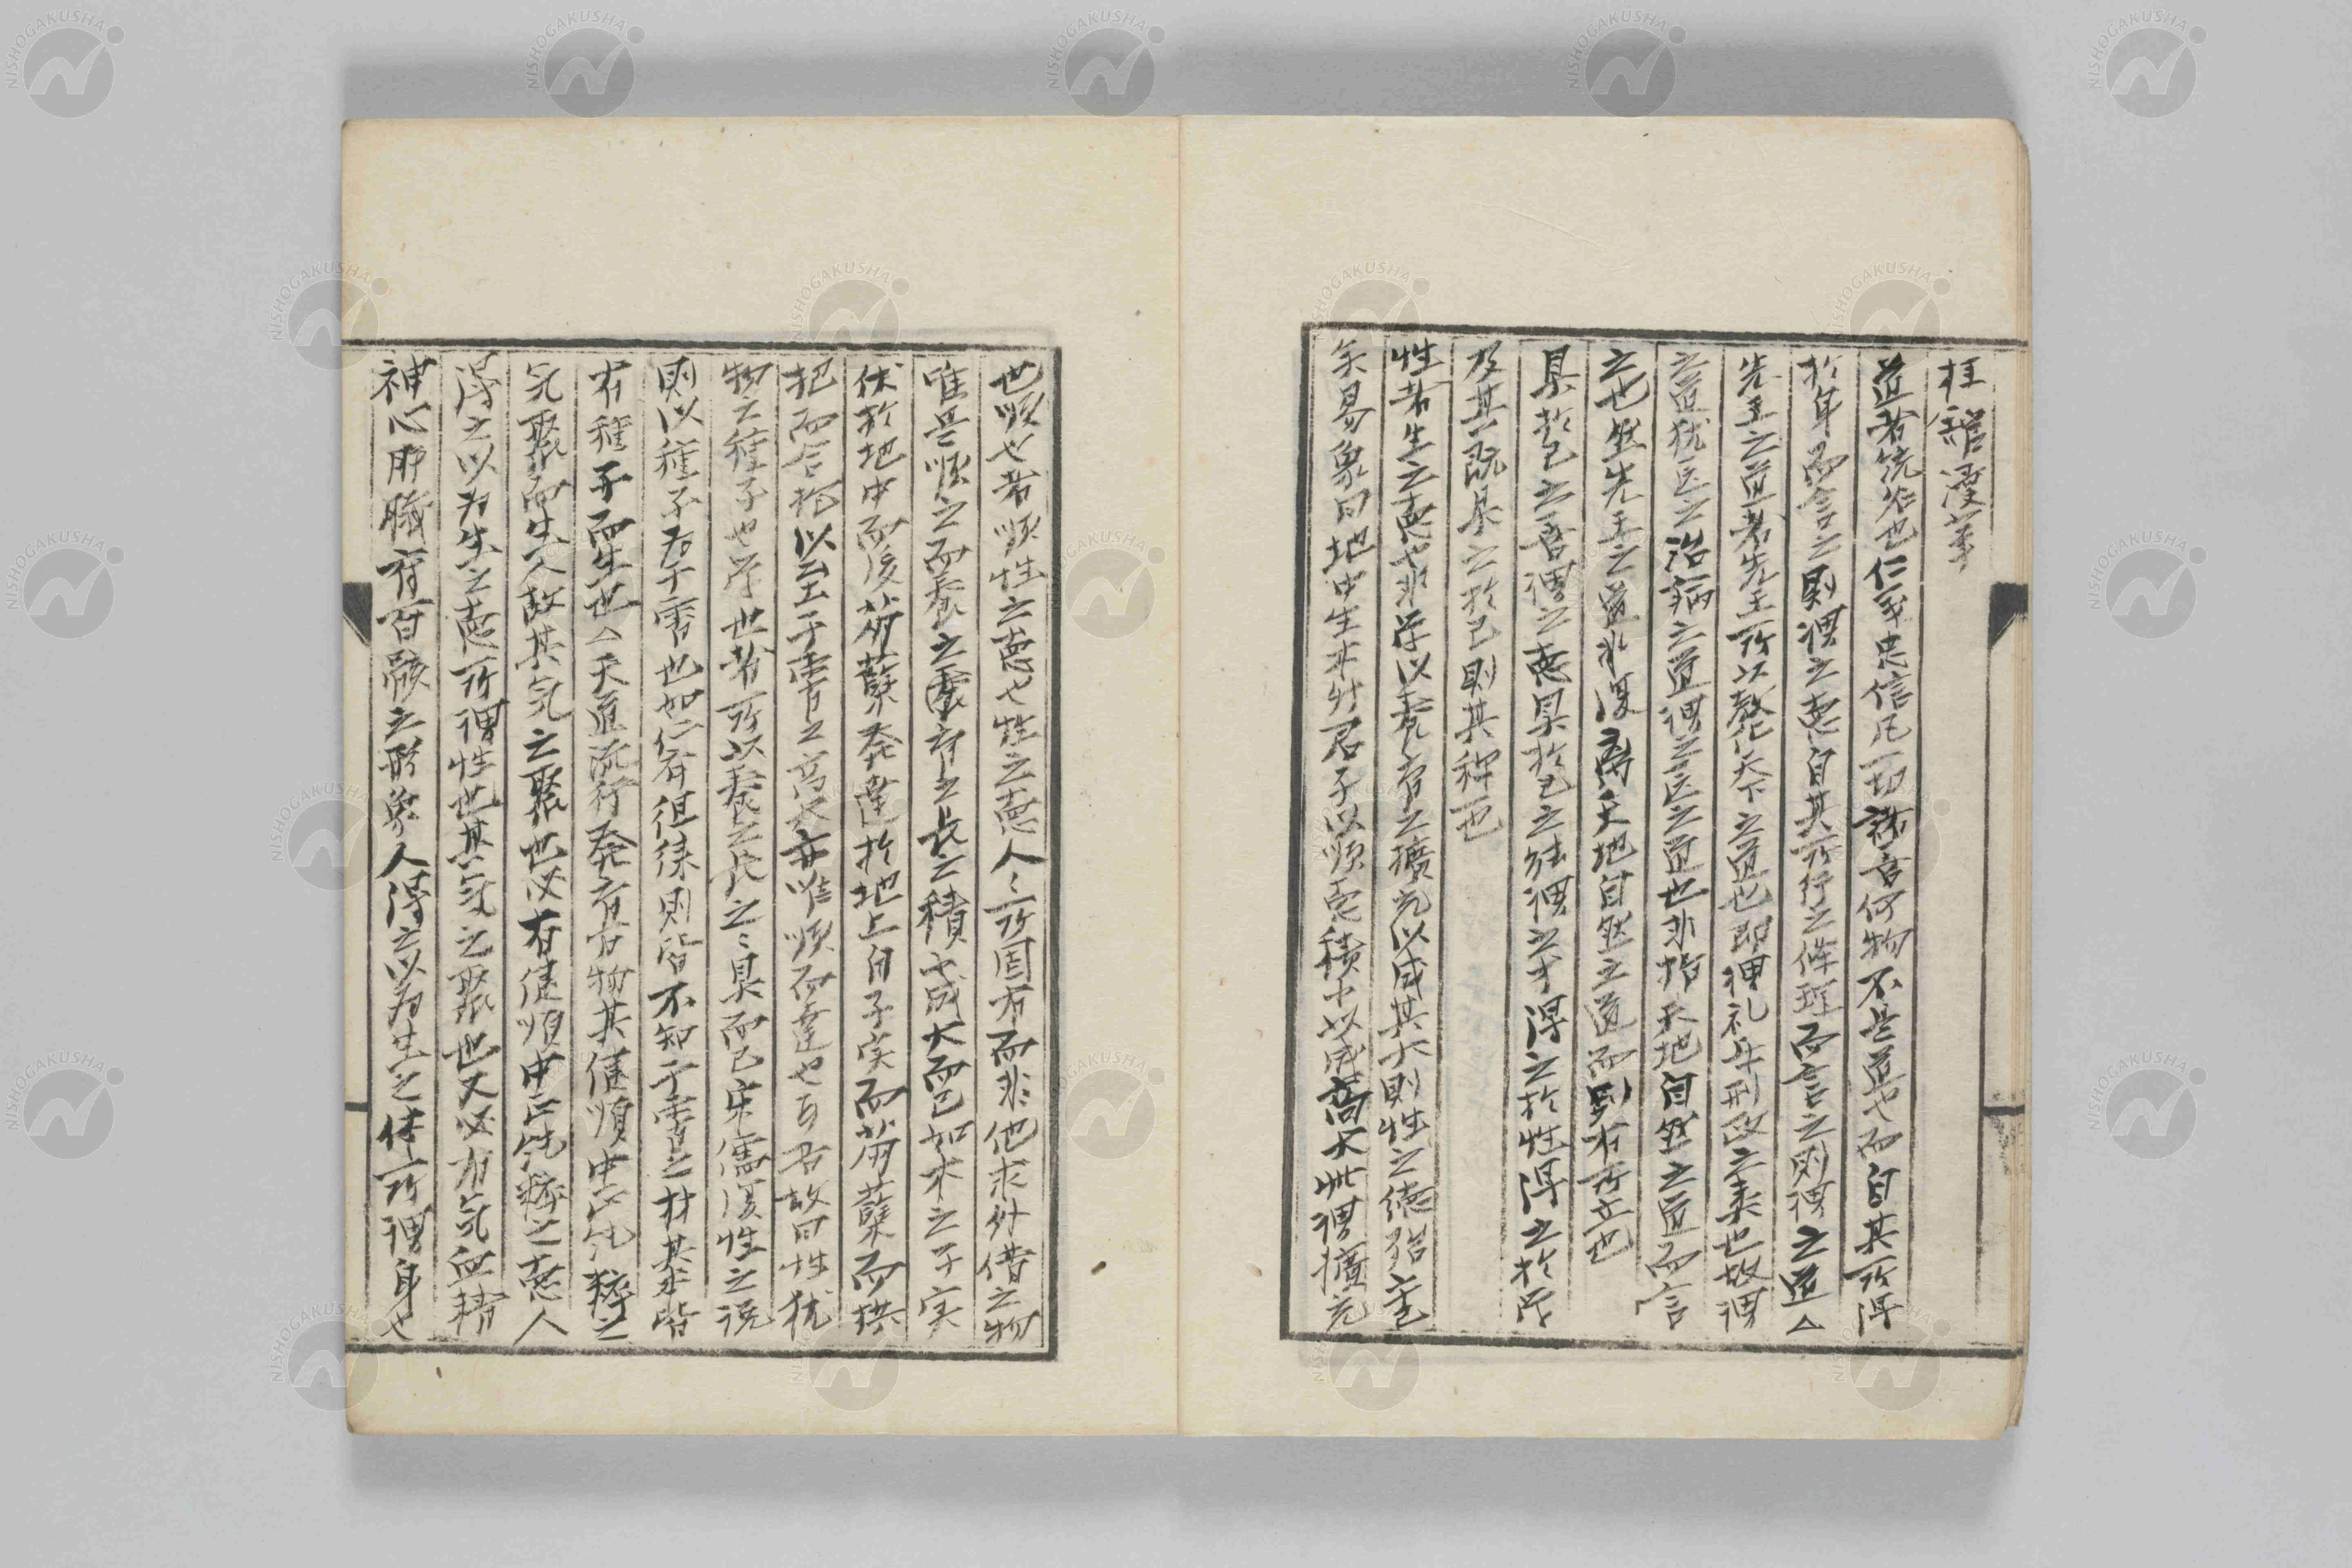 桂館漫筆
道者統名也仁義忠信凡一切語言何物不是道也而自其所得
於身而言之則謂之悳自其所行之條理而言之則謂之道△
先王之道者先王所以教化天下之道也即謂礼楽刑政之类也故謂
之道犹医之治病之道謂之医之道也非指天地自然之道而言
之也然先王之道非復离天地自然之道而別有所立也
具於己之善謂之悳具於己之能謂之才得之於性得之於学
及其既具之於己則其稱一也
性者生之悳也非学以養育之擴充以成其大則性之德殆空
矣易象曰地中生木升君子以順悳積小以成高大此謂擴充
也順也者順性之悳也性之悳人〻所固有而非他求外借之物
唯是順之而養之覆育之長之積小成大而已如木之子实
伏於地中而后萌蘖发達於地上自子实而萌蘖而拱
把而合抱以至于雲霄之高大亦唯順而達也已矣故曰性犹
物之種子也学也者所以養之長之〻具而已宋儒復性之说
則以種子为干霄也如仁斎徂徠則皆不知干霄之材其本皆
有種子而生也△天道流行发育万物其健順中正純粹之
気聚而生人故其気之聚也必有健順中正純粹之悳人
得之以为生之悳所謂性也其気之聚也又必有気血精
神心肝臓府百骸之形象人得之以为生之体所謂身也